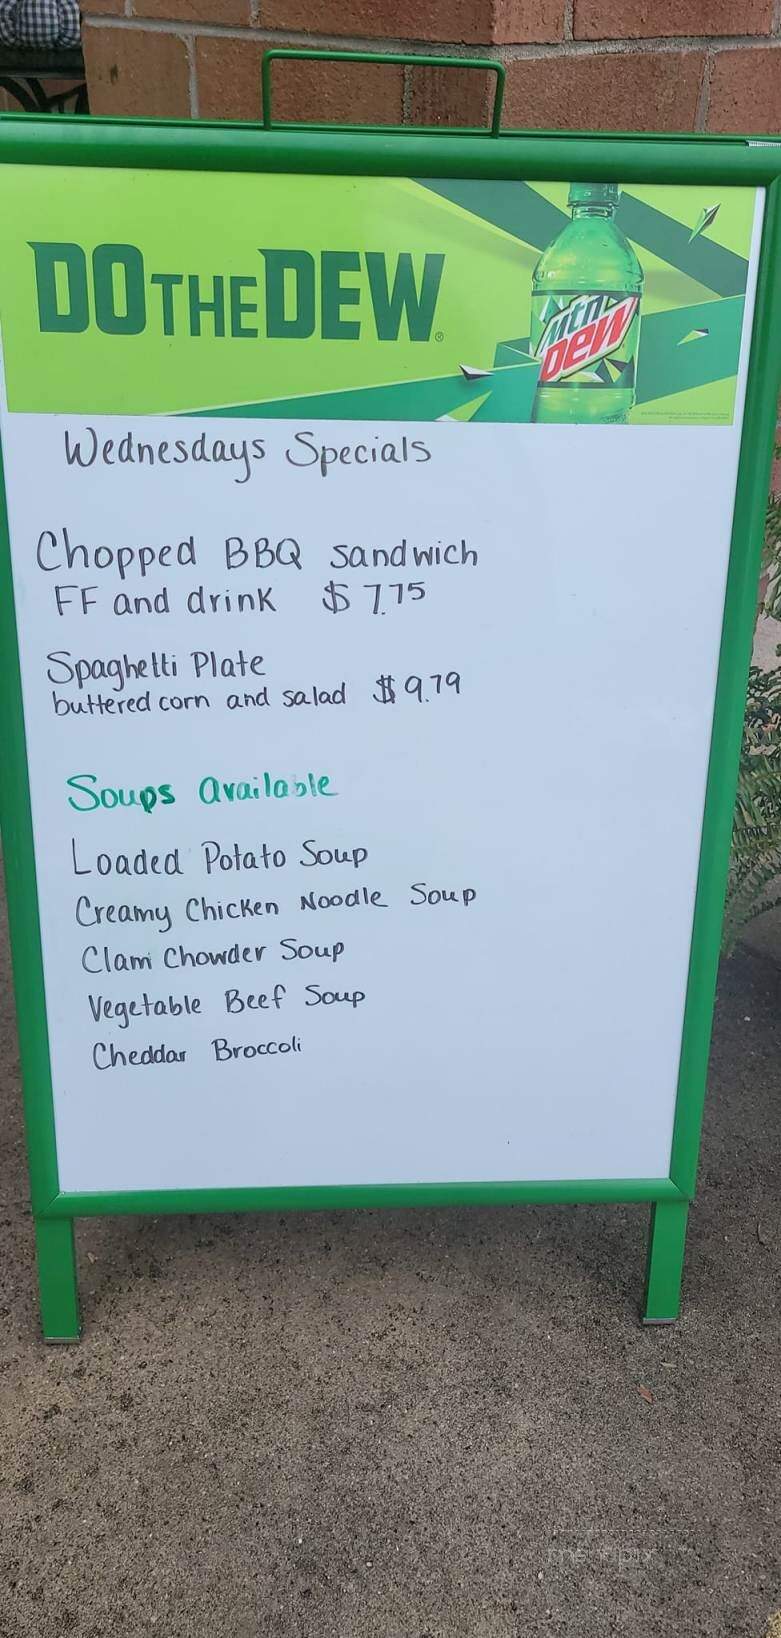 DO THE DEW®
mtn
DEW
Wednesdays Specials
Chopped BBQ sandwich
FF and drink $7.75
Spaghetti Plate
buttered corn and salad $9.79
Soups available
Loaded Potato Soup
Creamy Chicken Noodle Soup
Clam Chowder Soup
Vegetable Beef Soup
Cheddar Broccoli
menupix